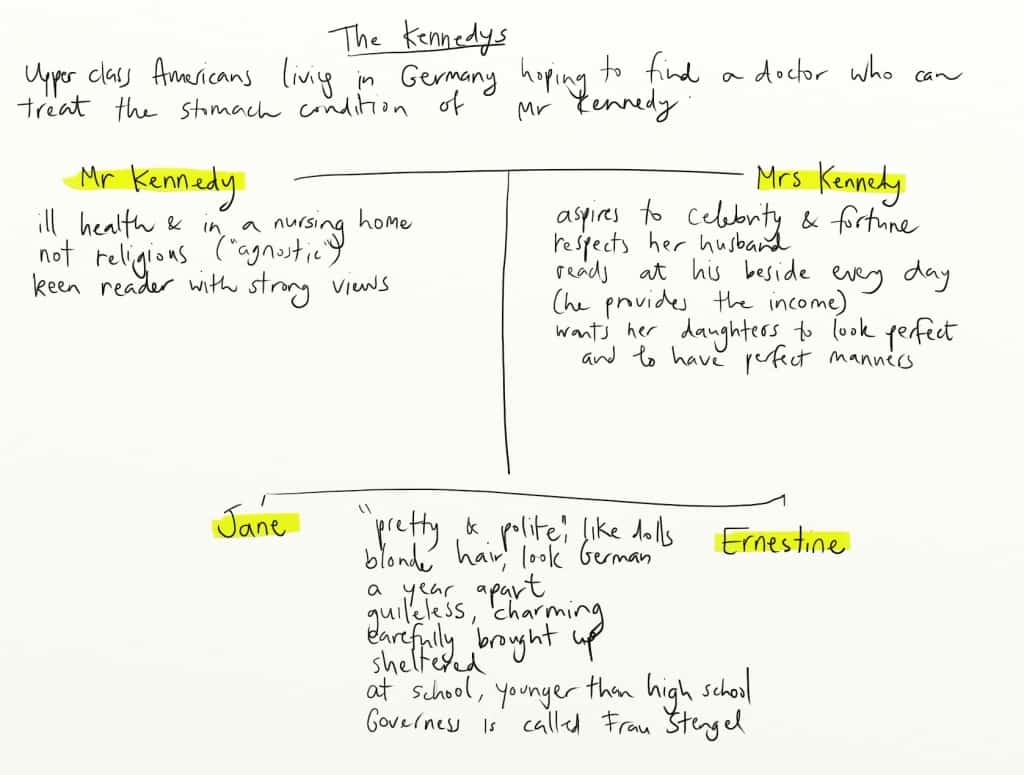 The Kennedys
Upper class Americans living in Germany hoping to find a doctor who can
treat the stomach condition of Mr Kennedy.
Mr Kennedy
ill health & in a nursing home
not religious ("agnostic")
keen reader with strong views
Mrs Kennedy
aspires to celebrity & fortune
respects her husband
reads at his beside every day
(he provides the income)
wants her daughters to look perfect
and to have perfect manners
Jane
"pretty & polite", like dolls
blonde hair, look German
a year apart
guileless, charming
carefully brought up
sheltered
at school, younger than high school
Governess is called Frau Stengel
Ernestine